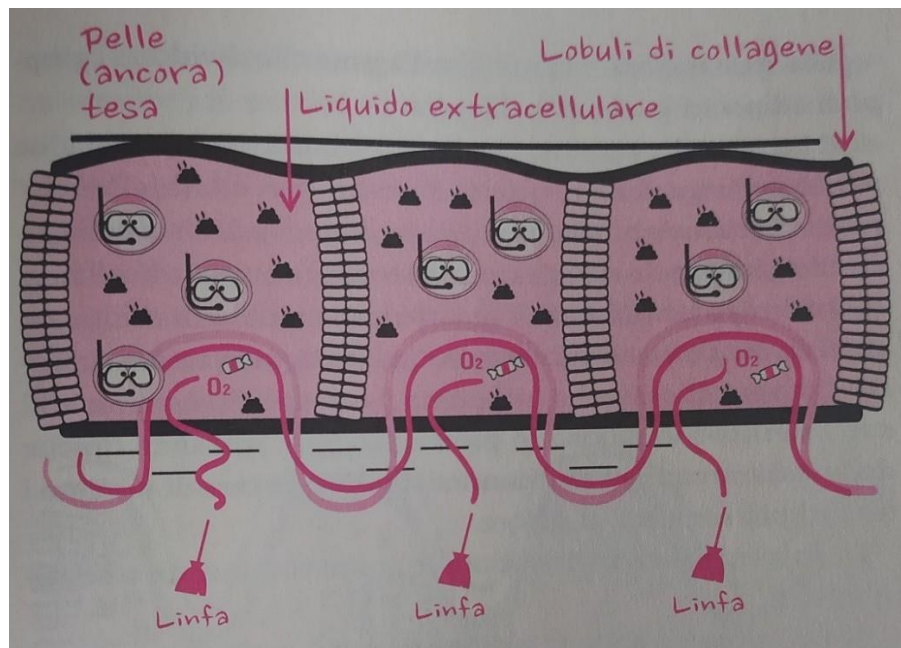 Pelle
(ancora)
tesa
Liquido extracellulare
Lobuli di collagene
O₂
O₂
O₂
Linfa
Linfa
Linfa